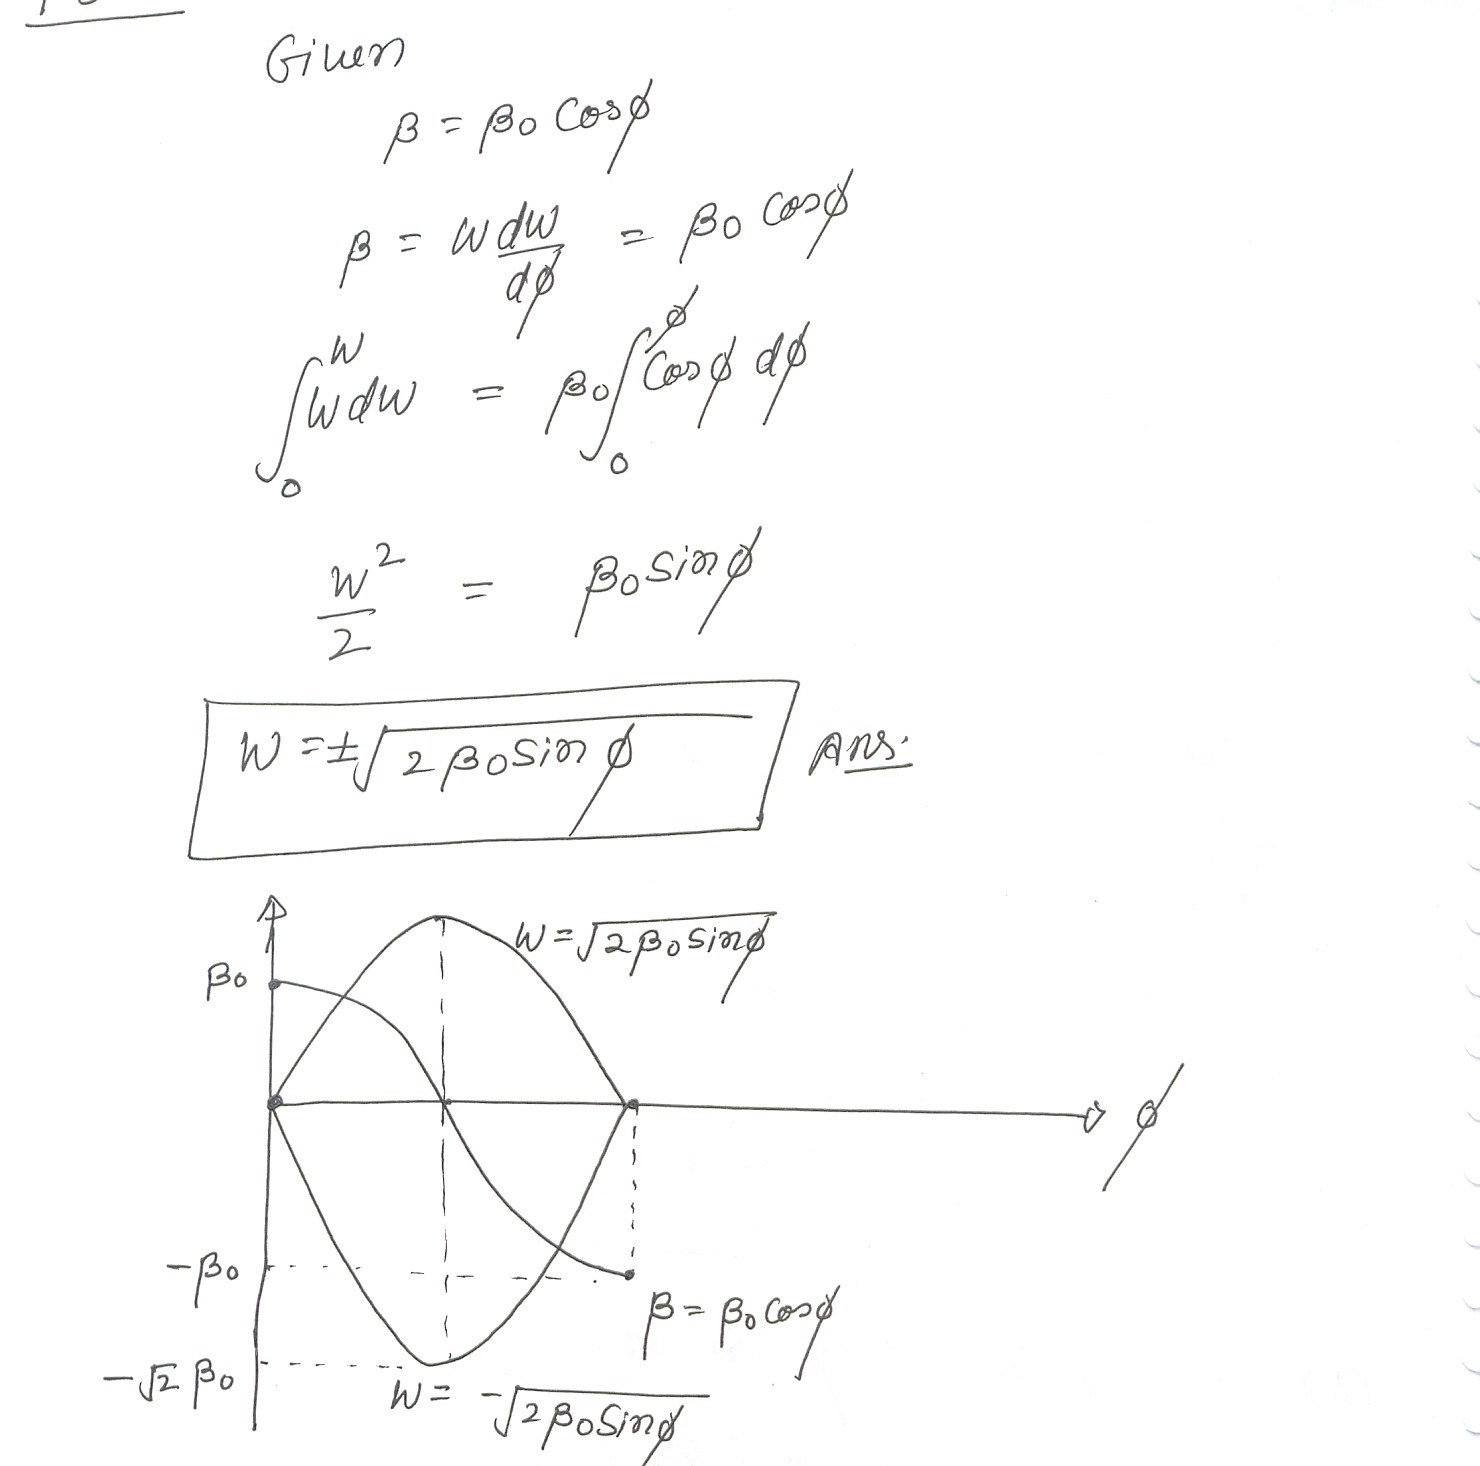 Given
β = β0 Cosϕ
β = W dW/dϕ = β0 Cosϕ
∫_0^W W dW = β0 ∫_0^ϕ Cosϕ dϕ
W^2/2 = β0 Sinϕ
W = ±√(2 β0 Sin ϕ) Ans.
W = √(2 β0 Sinϕ)
β0
ϕ
-β0
β = β0 Cosϕ
-√2 β0
W = -√(2 β0 Sinϕ)